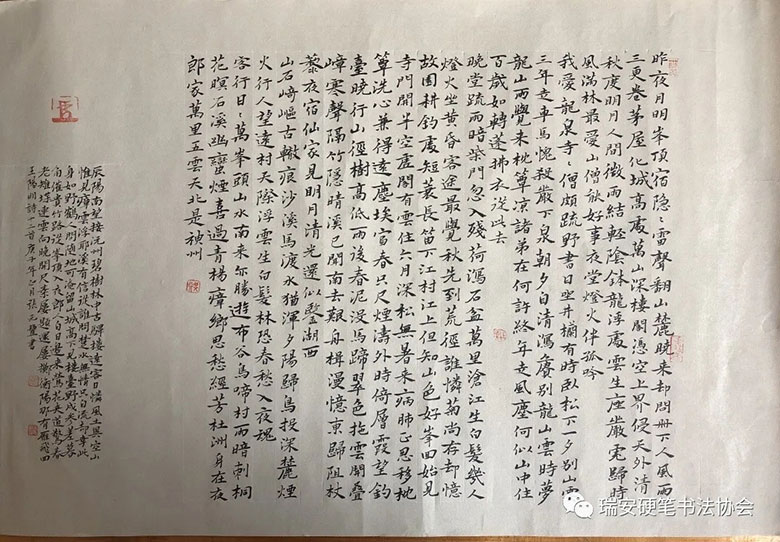 昨夜月明峯頂宿隠〻雷聲翻山麓曉來却問山下人風雨
三更卷茅屋化城高處萬山深樓閣憑空上界侵天外清
秋度明月人間微雨結輕陰鉢龍浮處雲生座巖虎歸時
風滿林最愛山僧能好事夜堂燈火伴孤吟
我愛龍泉寺〻僧頗疏野盡日坐井欄有時臥松下一夕別山雲
三年走車馬愧殺巖下泉朝夕自清瀉屢別龍山雲時夢
龍山雨覺來枕簟凉諸弟在何許終年走風塵何似山中住
百歲如轉蓬拂衣從此去
晚堂疏雨暗柴門忽入殘荷瀉石盆萬里滄江生白髮幾人
燈火坐黄昏客途最覺秋先到荒徑誰憐菊尚存却憶
故園耕釣處短蓑長笛下江村江上但知山色好峯回始見
寺門開半空虛閣有雲住六月深松無暑來病肺正思移枕
簟洗心兼得遠塵埃富春只尺煙濤外時倚層霞望釣
臺曉行山徑樹高低雨後春泥没馬蹄翠色拖雲開疊
嶂寒聲隔竹隠晴溪已聞南去艱舟楫漫憶東歸阻杖
藜夜宿仙家見明月清光還似鑒湖西
山石崎嶇古轍痕沙溪馬渡水猶渾夕陽歸鳥投深麓煙
火行人望遠村天際浮雲生白髮林恐春愁入夜魂
客行日〻萬峯頭山水南來亦勝遊布谷鳥啼村雨暗刺桐
花暝石溪幽蠻煙喜過青楊瘴鄉思愁經芳杜洲身在夜
郎家萬里五雲天北是神州
辰陽南望接沅州碧樹林中古驛樓遠客日憐風土異空山
惟見瘴雲浮耶溪有信從誰問楚水無情只自流却幸此
身如野鶴人間隨地可淹留山城高下見樓臺野戍參差暮
角催貴竹路從峯頂入夜郎人自日邊來鶯花夾道驚春
老雉堞連雲向晚開尺素屢題還屢擲衡陽那有雁飛回
王陽明詩十二首庚子年正月張書
瑞安硬笔书法协会